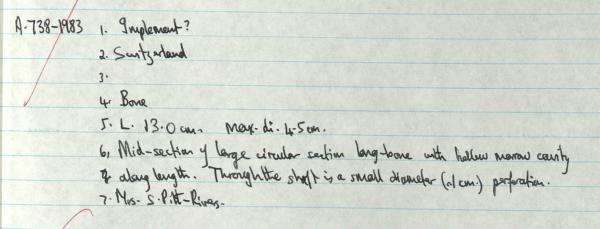 A.738-1983 1. Implement?
2. Switzerland
3.
4. Bone
5. L. 13.0 cm. Max. di. 4.5cm.
6. Mid-section of large circular section long-bone with hollow marrow cavity
along length. Through the shaft is a small diameter (~1cm.) perforation.
7. Mrs. S. Pitt-Rivers.